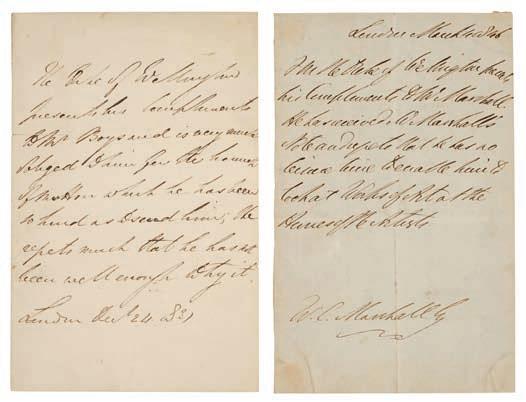 The Duke of Wellington
presents his Compliments
to Mr Boys and is very much
obliged to him for the haunch
of Mutton which he has been
so kind as to send him; He
regrets much that he has not
been well enough to try it.
London Decr 24 1831
London March 4 1846
F M The Duke of Wellington presents
his Compliments to Mr Marshall.
He has received Mr Marshall's
Note and regrets that he has no
leisure time to enable him to
look at Works of Art at the
Houses of the Artists
W. C. Marshall Esq